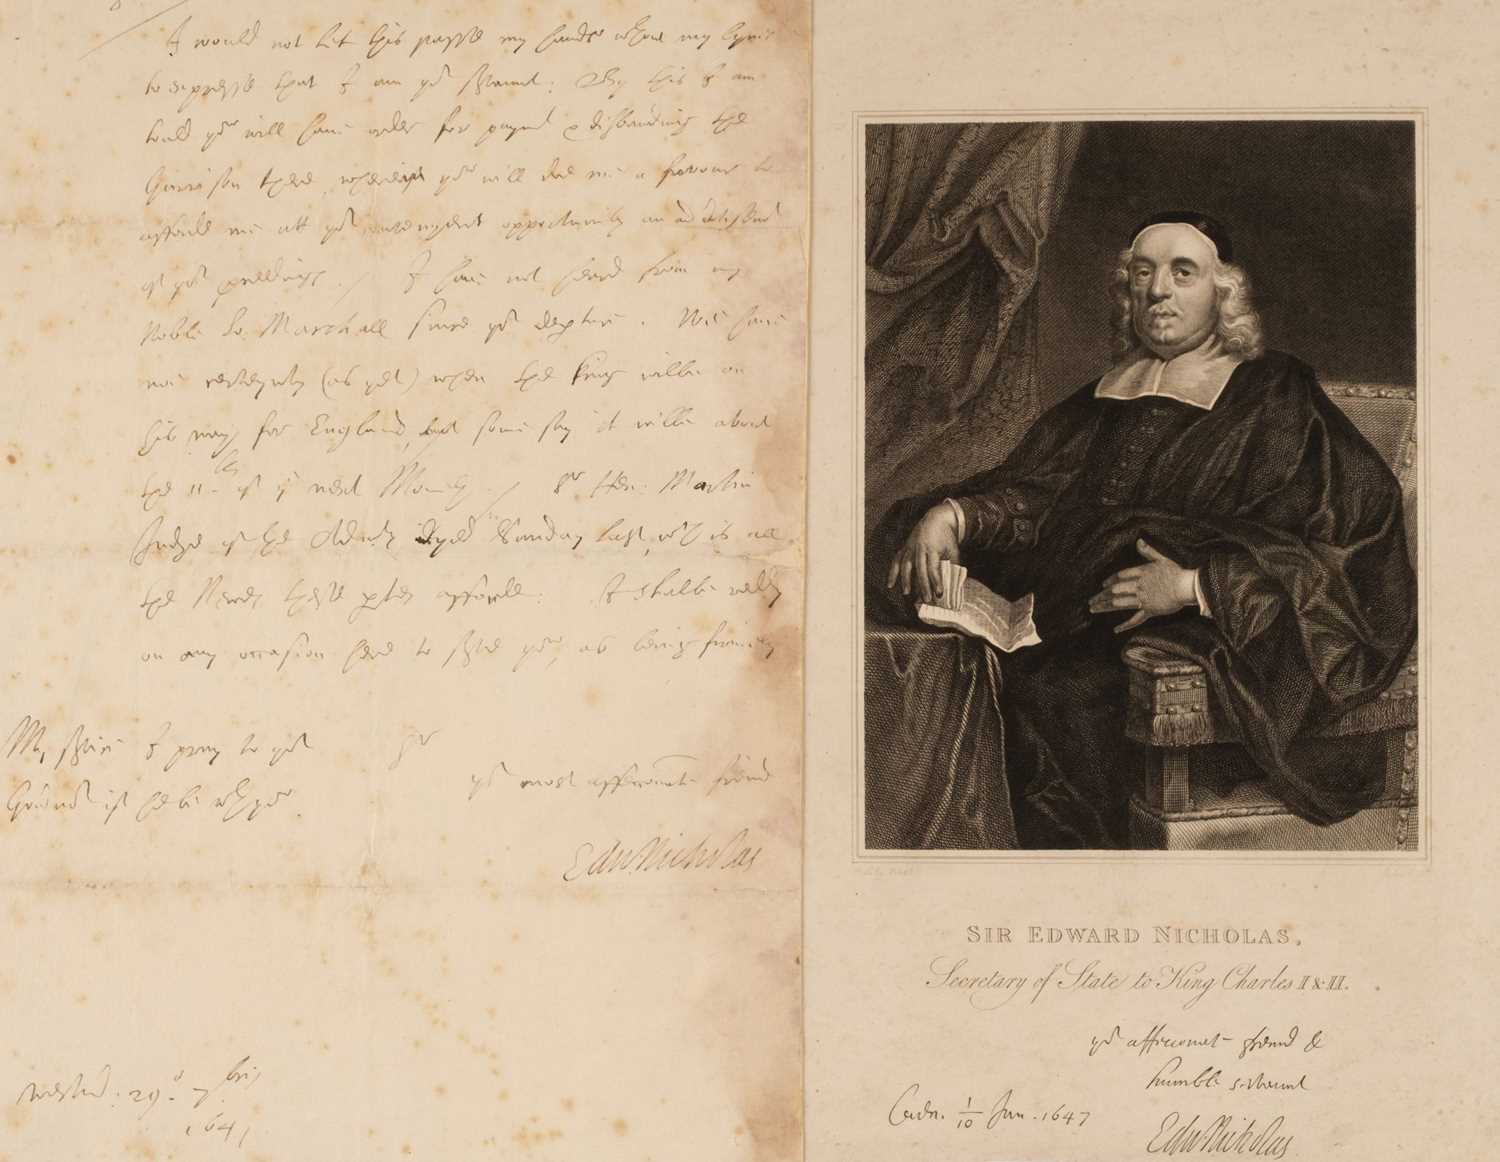 I would not let this passe my hands wthout my lynes
to expresse that I am yor servant: By this I am
tould you will have order for paymt & disbanding the
Garrison there, wherein you will doe me a favour to
afford me att yor convenyent opportunity an advertisemt
of yor proceedings. / I have not heard from my
Noble Lo. Marshall since yor depture. Wee have
noe certeynty (as yet) when the King wilbe on
his way for England, but some say it wilbe about
the 11th of ye next Moneth. / Sr Hen: Martin
Judge of the Admty dyed Sunday last, wch is all
the Newes these ptes afford: I shalbe ready
on any occasion here to serve you, as being
My service I pray to yor
Governor if he be wth you.
Sr
yor most affeconate freind
Edw. Nicholas
Westmr. 29o 7bris
1641
SIR EDWARD NICHOLAS,
Secretary of State to King Charles I & II.
yor affeconat freind &
humble servant
Cadn. 1/10 Jan. 1647
Edw. Nicholas